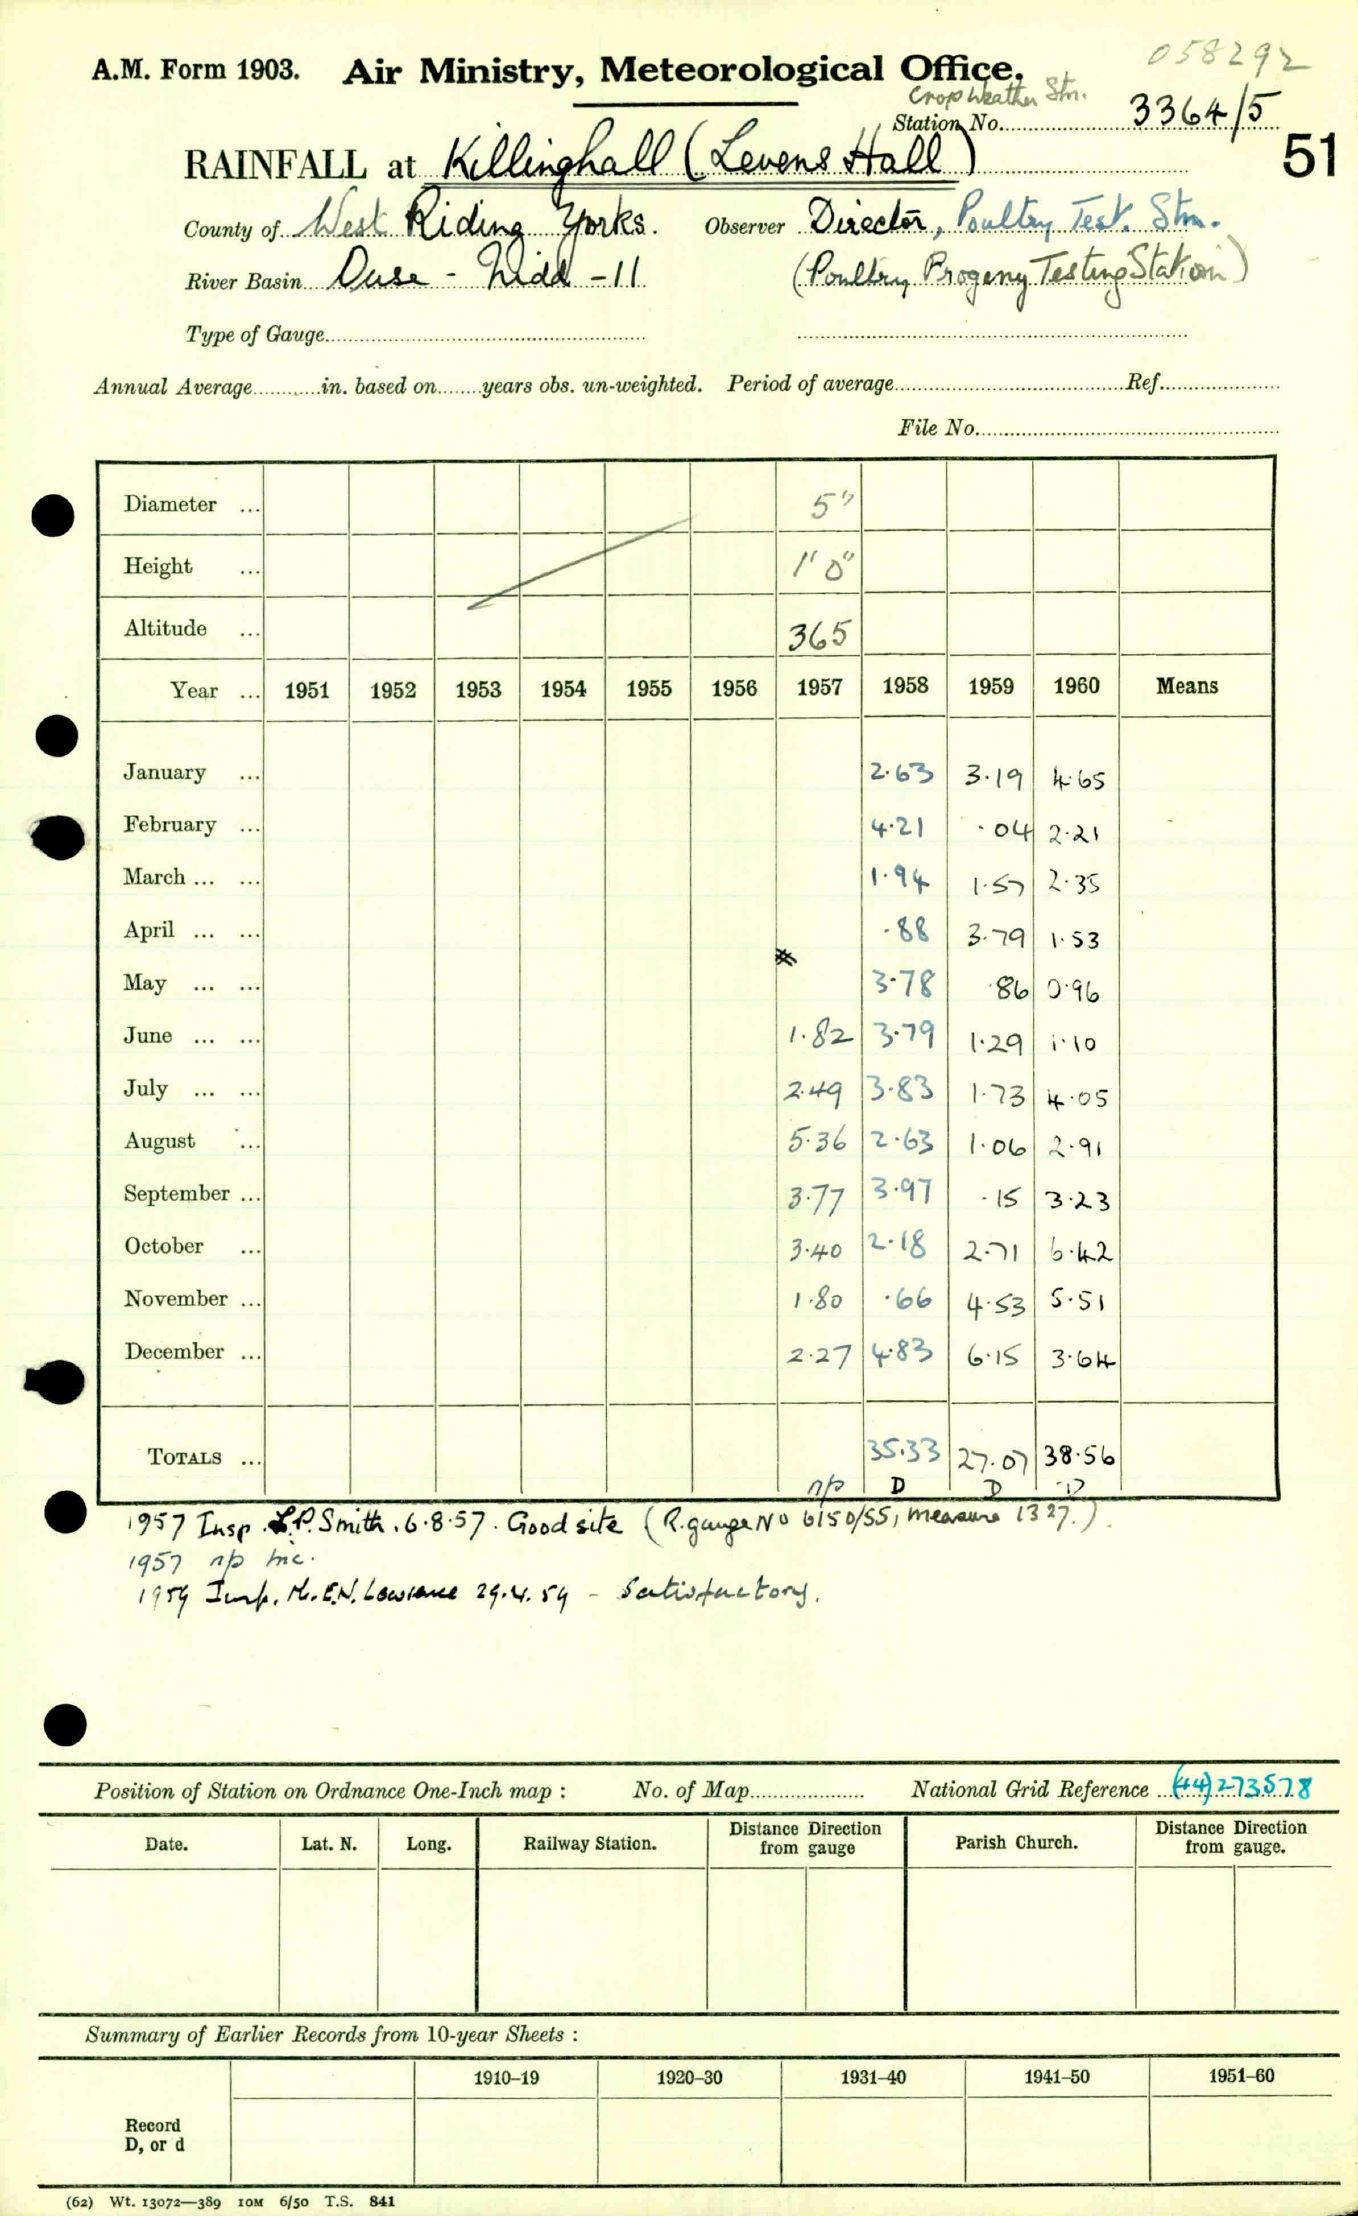 058292
A.M. Form 1903. Air Ministry, Meteorological Office.
Crop Weather Stn.
Station No. 3364/5
51
RAINFALL at Killinghall (Levens Hall)
County of West Riding Yorks. Observer Director, Poultry Test. Stn.
River Basin Ouse - Nidd - 11 (Poultry Progeny Testing Station)
Type of Gauge
Annual Average in. based on years obs. un-weighted. Period of average Ref.
File No.
Diameter ... 5"
Height ... 1' 0"
Altitude ... 365
Year ... 1951 1952 1953 1954 1955 1956 1957 1958 1959 1960 Means
January ... 2.63 3.19 4.65
February ... 4.21 .04 2.21
March ... ... 1.94 1.57 2.35
April ... ... .88 3.79 1.53
May ... ... 3.78 .86 0.96
June ... ... 1.82 3.79 1.29 1.10
July ... ... 2.49 3.83 1.73 4.05
August ... 5.36 2.63 1.06 2.91
September ... 3.77 3.97 .15 3.23
October ... 3.40 2.18 2.71 6.42
November ... 1.80 .66 4.53 5.51
December ... 2.27 4.83 6.15 3.64
TOTALS ... 35.33 27.07 38.56
n/p D D D
1957 Insp. L.P. Smith. 6.8.57. Good site (R.gauge No 6150/55, measure 1327.).
1957 n/p inc.
1959 Insp. Mr. E.N. Lawrence 29.4.59 - Satisfactory.
Position of Station on Ordnance One-Inch map : No. of Map National Grid Reference (44) 273578
Date. Lat. N. Long. Railway Station. Distance Direction from gauge Parish Church. Distance Direction from gauge.
Summary of Earlier Records from 10-year Sheets :
1910–19 1920–30 1931–40 1941–50 1951–60
Record
D, or d
(62) Wt. 13072—389 10M 6/50 T.S. 841